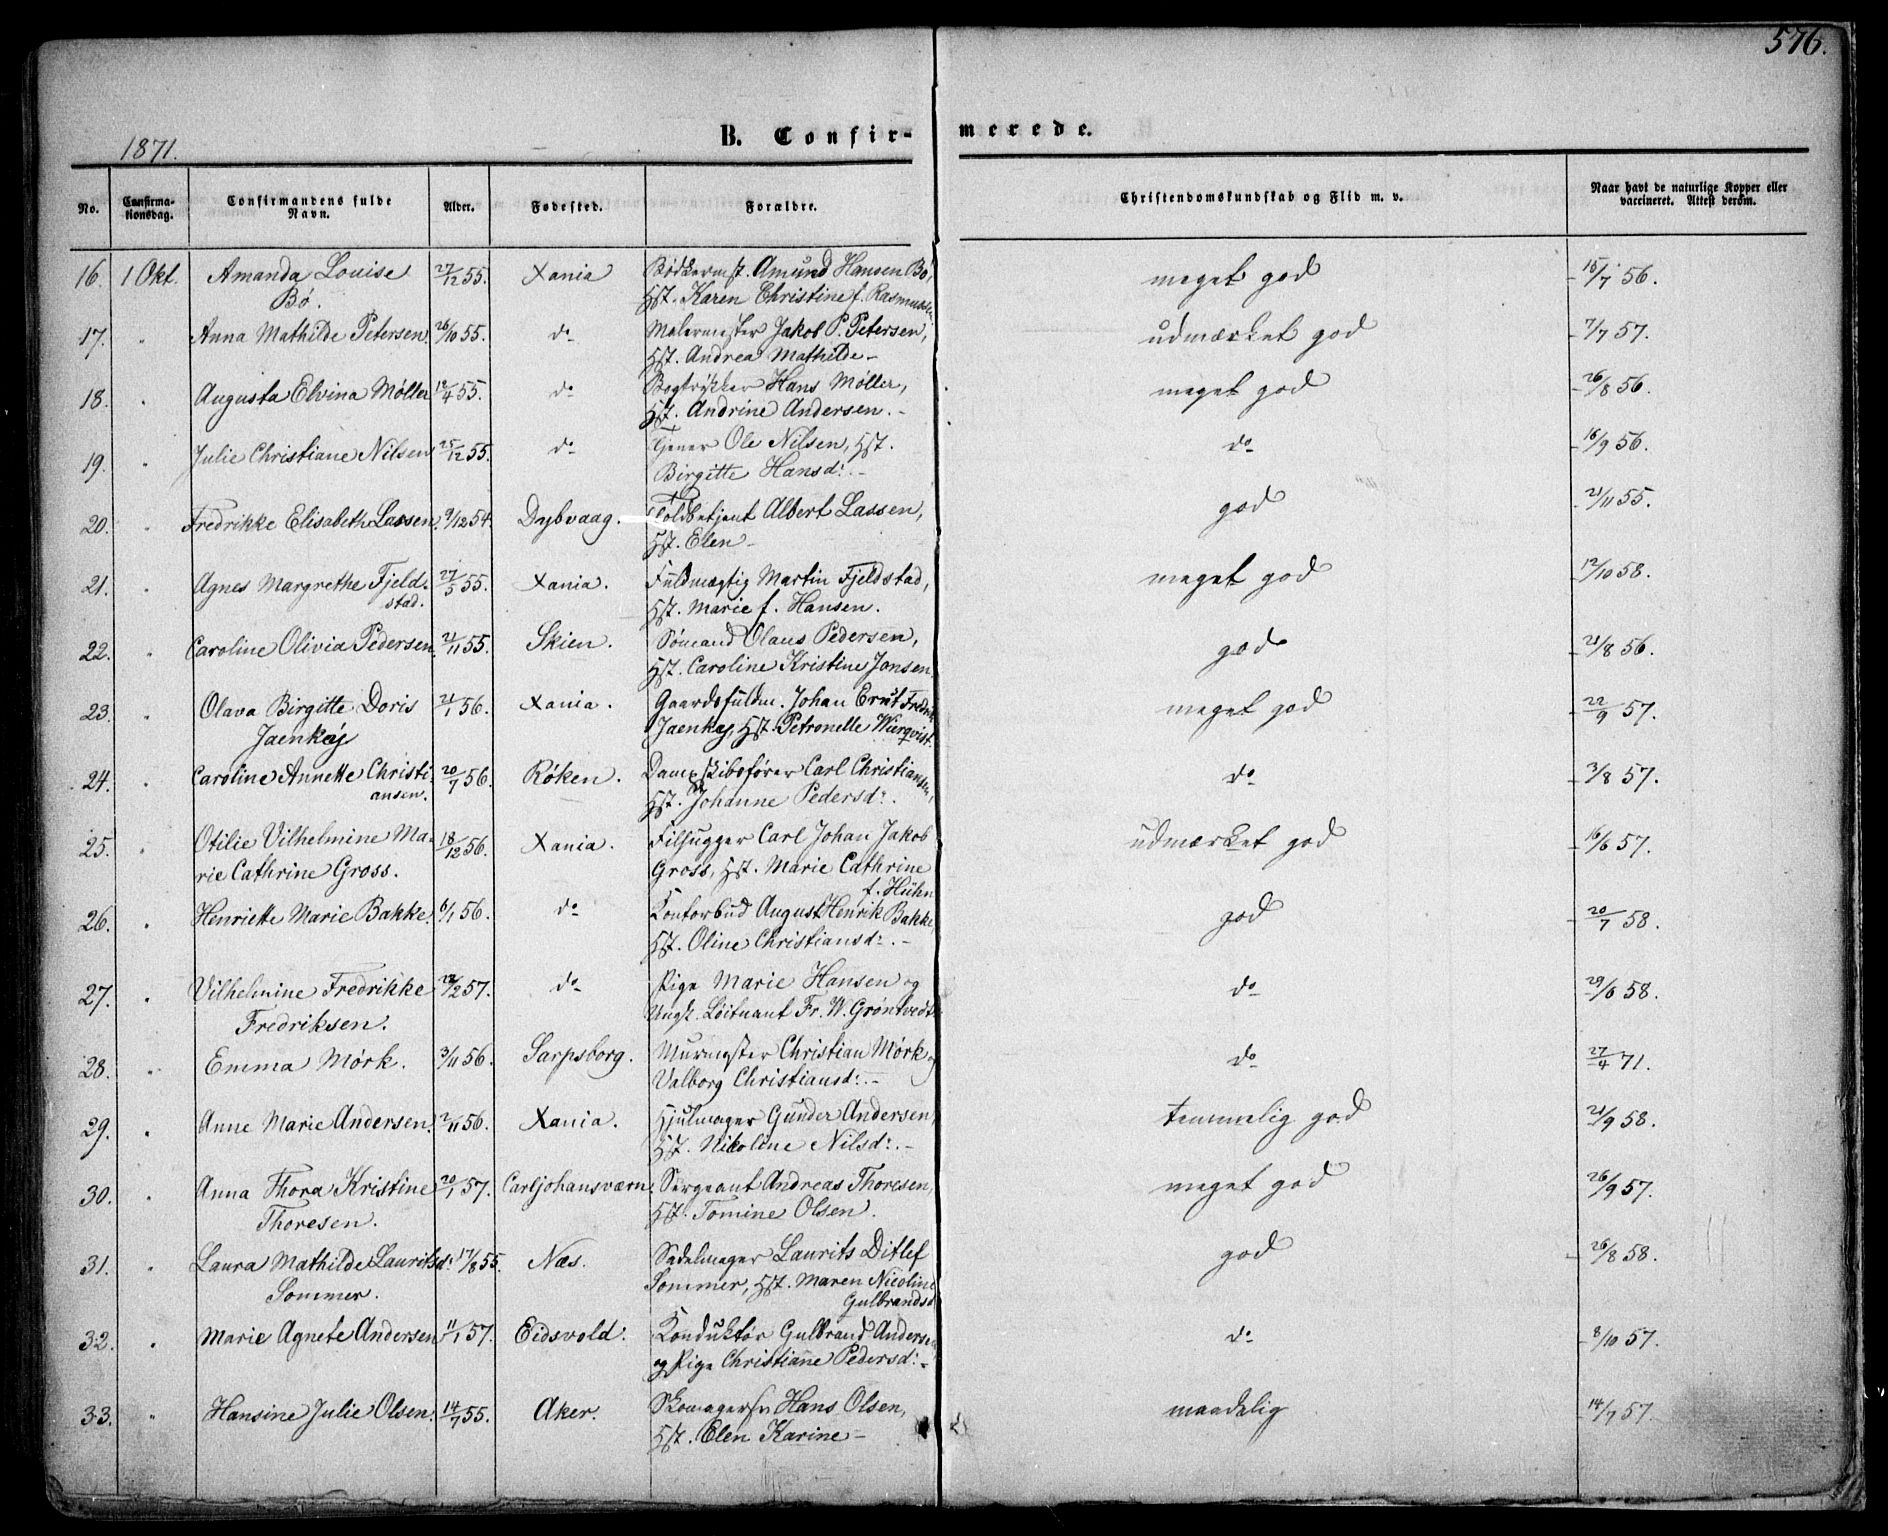 576.
1871.
B. Confir- merede.
No. Confirma-tionsdag. Confirmandens fulde Navn. Alder. Fødested. Forældre. Christendomskundskab og Flid m. v. Naar havt de naturlige Kopper eller vaccineret. Attest derom.
16. 1 Okt. Amanda Louise 27/12 55. Xania Bødkermst. Amund Hansen Bø, meget god 15/7 56.
Bø. Hst. Karen Christine f. Rasmussen
17. " Anna Mathilde Petersen 26/10 55. do Malermester Jakob P. Petersen, udmærket god 7/7 57.
Hst. Andrea Mathilde
18. " Augusta Elvina Møller 12/4 55. do Bogtrykker Hans Møller, meget god 26/8 56.
Hst. Andrine Andersen.
19. " Julie Christiane Nilsen 25/12 55. do Tjener Ole Nilsen, Hst. do 16/9 56.
Birgitte Hansd:
20. " Fredrikke Elisabeth Lassen 9/12 54. Dybvaag. Toldbetjent Albert Lassen, god 21/11 55.
Hst. Elen
21. " Agnes Margrethe Fjeld- 27/5 55. Xania. Fuldmægtig Martin Fjeldstad, meget god 12/10 58.
stad. Hst. Marie f. Hansen.
22. " Caroline Olivia Pedersen 21/11 55. Skien. Sømand Olaus Pedersen, god 21/8 56.
Hst. Caroline Kristine Jonsen
23. " Olava Birgitte Doris 21/1 56. Xania. Gaardsfuldm. Johan Ernst Fredrik meget god 22/9 57.
Jaenkej Jaenkej, Hst. Petronelle
24. " Caroline Annette Christi- 20/7 56. Røken. Dampskibsfører Carl Christiansen, do 3/8 57.
ansen. Hst. Johanne Pedersd:
25. " Otilie Vilhelmine Ma- 18/12 56. Xania. Filhugger Carl Johan Jakob udmærket god 16/6 57.
rie Cathrine Gross. Gross, Hst. Marie Cathrine
f. Hühn
26. " Henriette Marie Bakke 6/1 56. do Kontorbud August Henrik Bakke god 20/7 58.
Hst. Oline Christiansd:
27. " Vilhelmine Fredrikke 22/2 57. do Pige Marie Hansen og do 29/6 58.
Fredriksen. Ungk. Løitnant Fr. W. Grøntvedt
28. " Emma Mørk. 3/11 56. Sarpsborg. Murmester Christian Mørk og do 27/4 71.
Valborg Christiansd:
29. " Anne Marie Andersen. 2/11 56. Xania. Hjulmager Gunder Andersen, temmelig god 21/9 58.
Hst. Nikoline Nilsd:
30. " Anna Thora Kristine 20/1 57. Carljohansværn. Sergeant Andreas Thoresen, meget god 26/9 57.
Thoresen. Hst. Tomine Olsen.
31. " Laura Mathilde Lauritsd: 17/8 55. Næs. Sadelmager Laurits Ditlef god 26/8 58.
Sommer. Sommer, Hst. Maren Nicoline
Gulbrandsd
32. " Marie Agnete Andersen 11/1 57. Eidsvold: Konduktør Gulbrand Andersen do 8/10 57.
og Pige Christiane Pedersd:
33. " Hansine Julie Olsen. 14/7 55. Aker. Skomagersv. Hans Olsen, maadelig 14/7 57.
Hst. Elen Karine